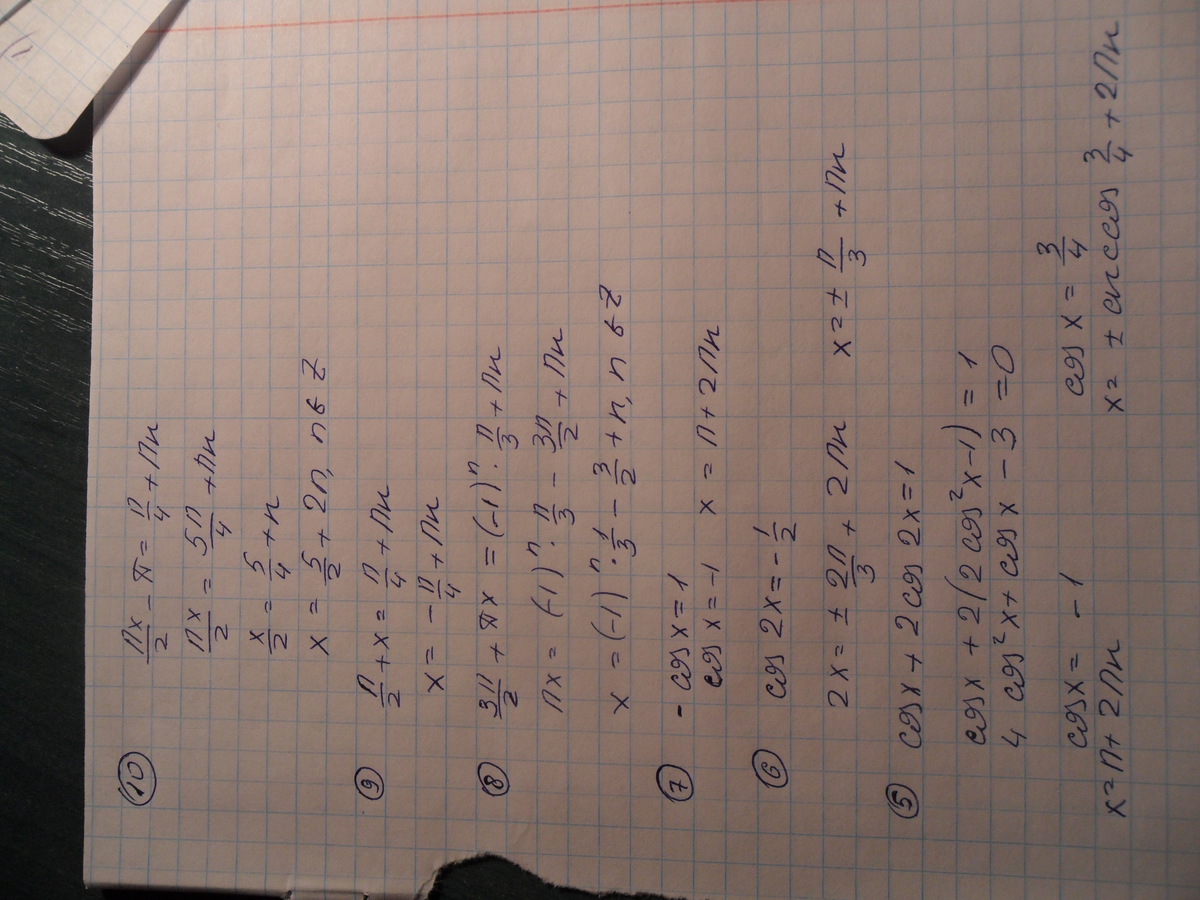 10 пx/2 - π = п/4 + пn
пx/2 = 5п/4 + пn
x/2 = 5/4 + n
x = 5/2 + 2n, n ∈ Z
9 п/2 + x = п/4 + пn
x = - п/4 + пn
8 3п/2 + πx = (-1)ⁿ · п/3 + пn
пx = (-1)ⁿ · п/3 - 3п/2 + пn
x = (-1)ⁿ · 1/3 - 3/2 + n, n ∈ Z
7 - cos x = 1
cos x = -1 x = п + 2пn
6 cos 2x = - 1/2
2x = ± 2п/3 + 2пn x = ± п/3 + пn
5 cos x + 2 cos 2x = 1
cos x + 2(2 cos²x - 1) = 1
4 cos²x + cos x - 3 = 0
cos x = -1 cos x = 3/4
x = п + 2пn x = ± arccos 3/4 + 2пn